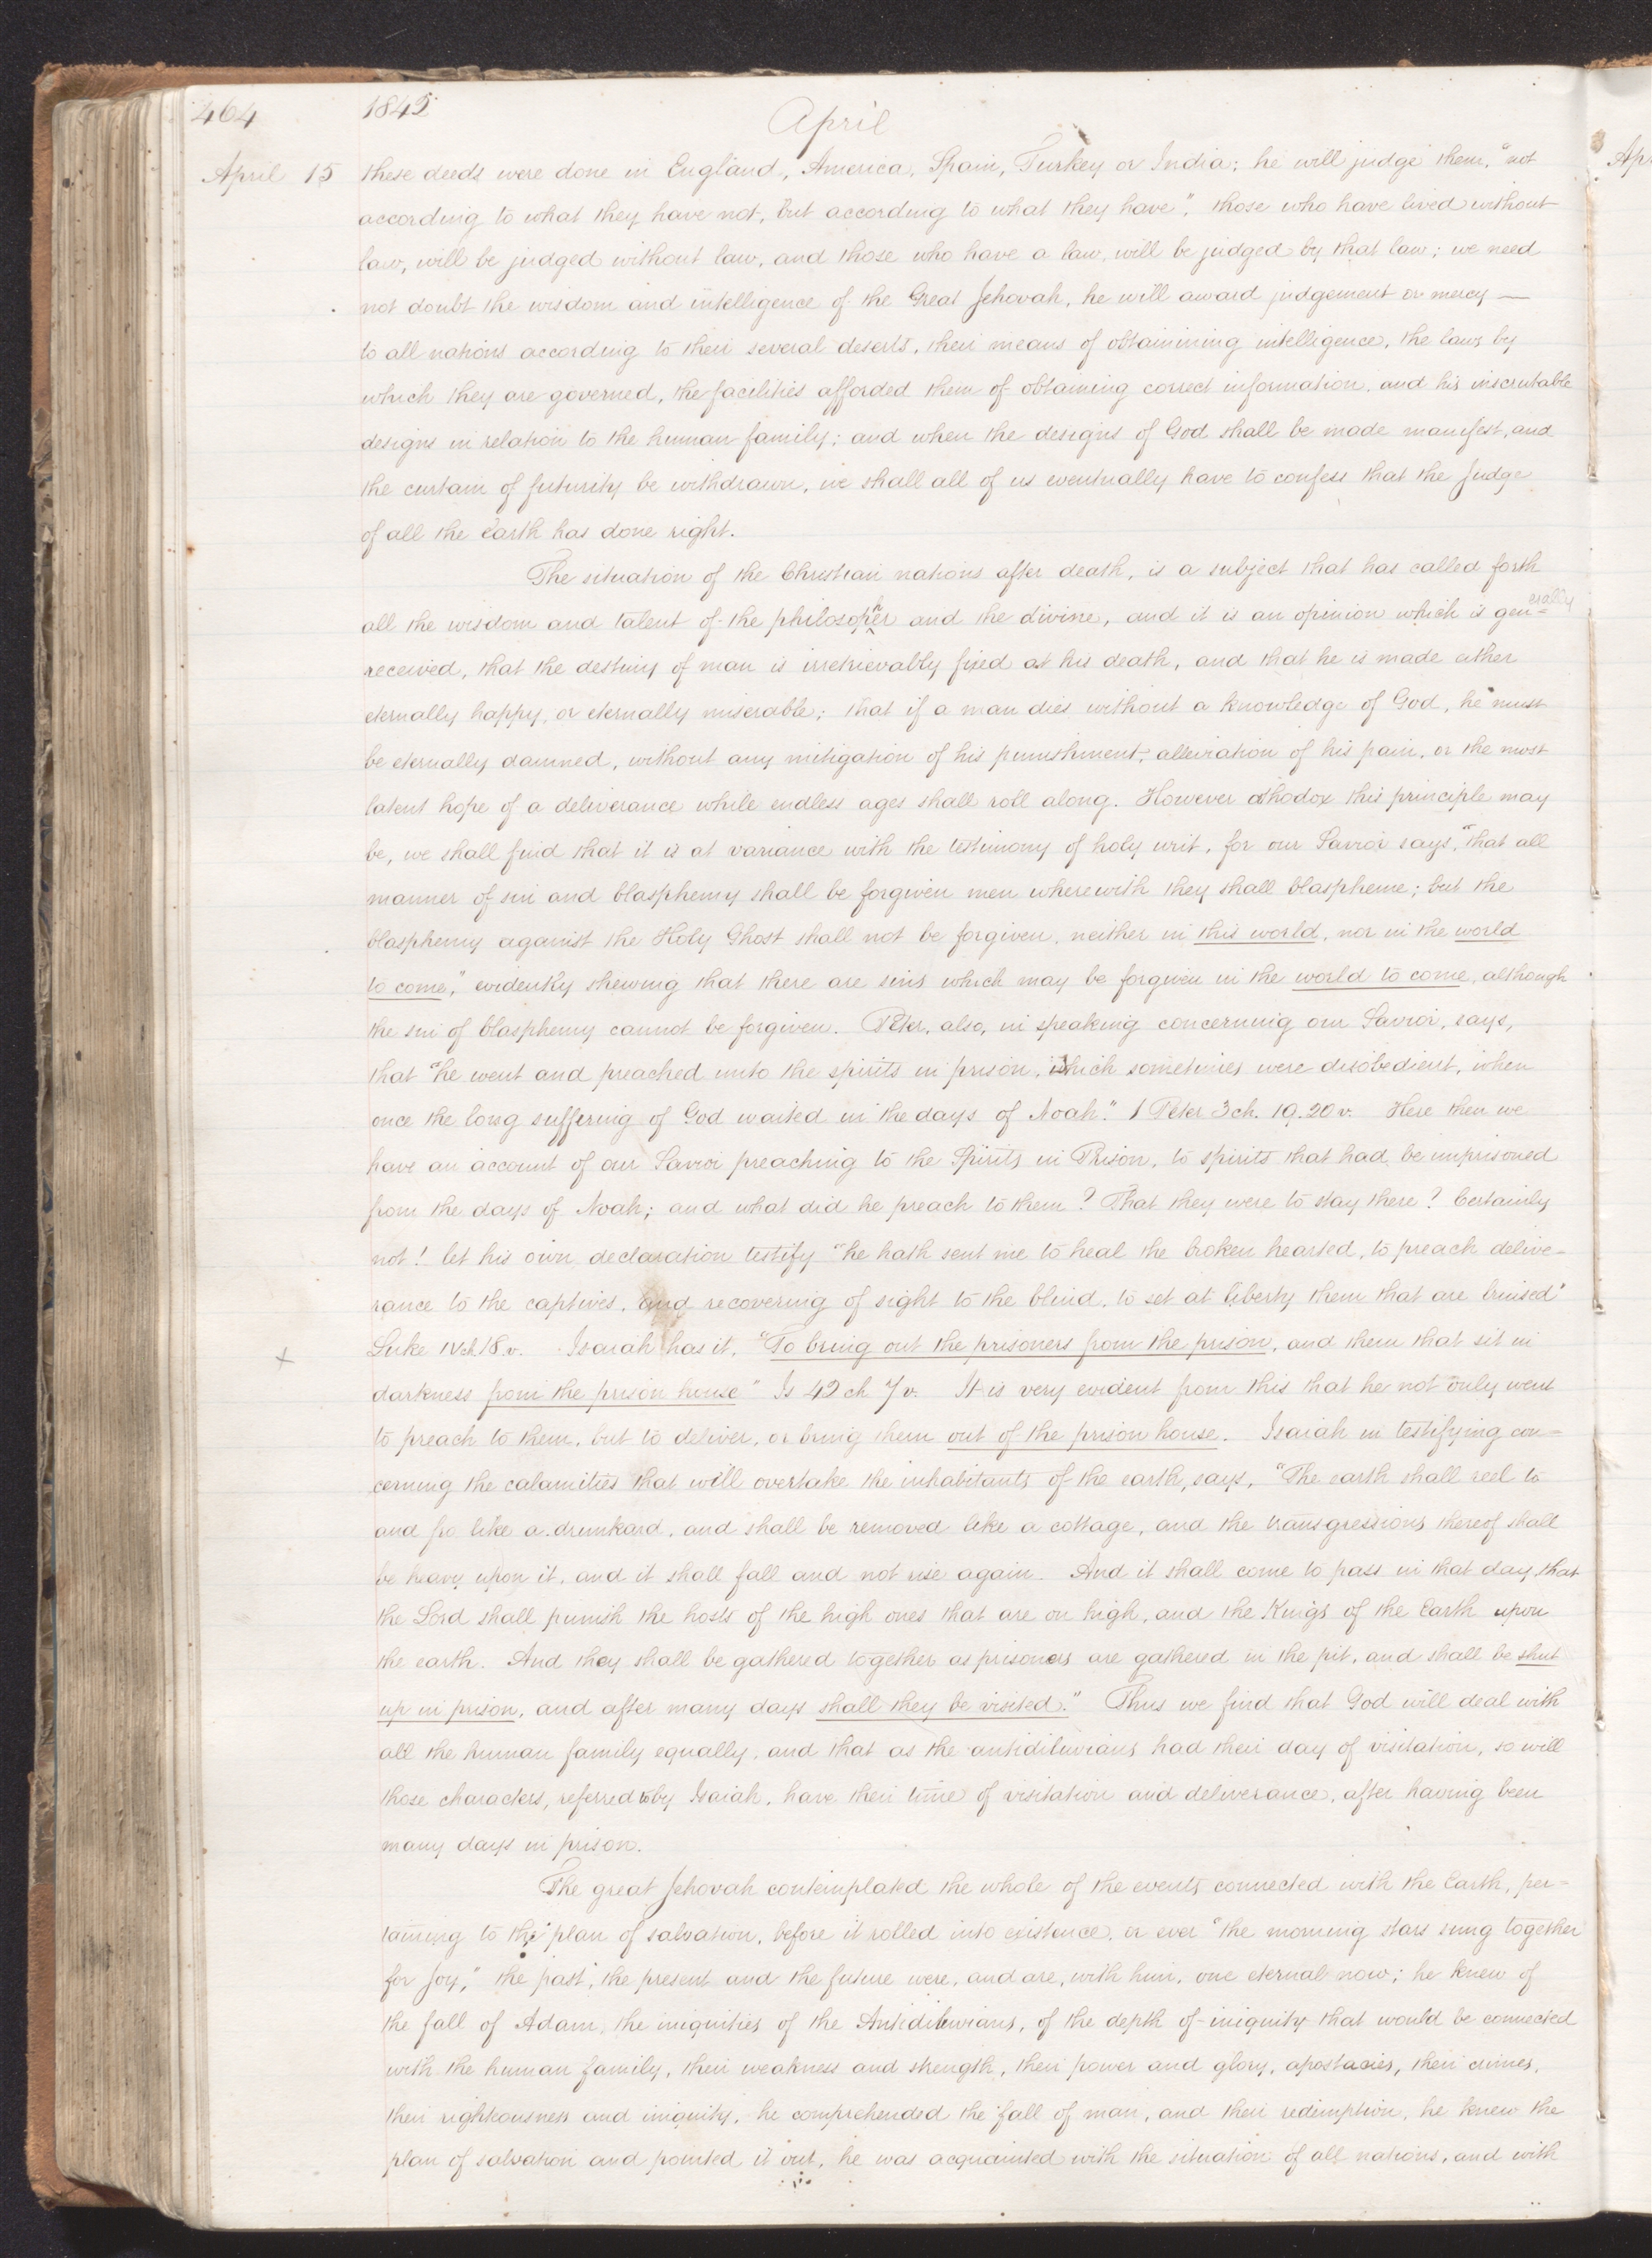 464 1842 April
April 15 these deeds were done in England, America, Spain, Turkey or India; he will judge them, "not
according to what they have not, but according to what they have", those who have lived without
law, will be judged without law, and those who have a law, will be judged by that law; we need
not doubt the wisdom and intelligence of the Great Jehovah, he will award judgement or mercy —
to all nations according to their several deserts, their means of obtainining intelligence, the laws by
which they are governed, the facilities afforded them of obtaining correct information, and his inscrutable
designs in relation to the human family; and when the designs of God shall be made manifest, and
the curtain of futurity be withdrawn, we shall all of us eventually have to confess that the Judge
of all the Earth has done right.
The situation of the Christian nations after death, is a subject that has called forth
all the wisdom and talent of the philosopher and the divine, and it is an opinion which is gen=erally
received, that the destiny of man is irretrievably fixed at his death, and that he is made either
eternally happy, or eternally miserable; that if a man dies without a knowledge of God, he must
be eternally damned, without any mitigation of his punishment, alleviation of his pain, or the most
latent hope of a deliverance while endless ages shall roll along. However othodox this principle may
be, we shall find that it is at variance with the testimony of holy writ, for our Savior says, "that all
manner of sin and blasphemy shall be forgiven men wherewith they shall blaspheme; but the
blasphemy against the Holy Ghost shall not be forgiven, neither in this world, nor in the world
to come," evidently shewing that there are sins which may be forgiven in the world to come, although
the sin of blasphemy cannot be forgiven. Peter, also, in speaking concerning our Savior, says,
that "he went and preached unto the spirits in prison, which sometimes were disobedient, when
once the long suffering of God waited in the days of Noah." 1 Peter 3 ch. 19.20 v. Here then we
have an account of our Savior preaching to the Spirits in Prison, to spirits that had be imprisoned
from the days of Noah; and what did he preach to them? That they were to stay there? Certainly
not! let his own declaration testify "he hath sent me to heal the broken hearted, to preach delive=
rance to the captives, and recovering of sight to the blind, to set at liberty them that are bruised"
+ Luke IV ch 18. v. Isaiah has it, "To bring out the prisoners from the prison, and them that sit in
darkness from the prison house" Is 42 ch 7 v. It is very evident from this that he not only went
to preach to them, but to deliver, or bring them out of the prison house. Isaiah in testifying con=
cerning the calamities that will overtake the inhabitants of the earth, says, "The earth shall reel to
and fro like a drunkard, and shall be removed like a cottage, and the transgressions thereof shall
be heavy upon it, and it shall fall and not rise again. And it shall come to pass in that day, that
the Lord shall punish the hosts of the high ones that are on high, and the Kings of the Earth upon
the earth. And they shall be gathered together as prisoners are gathered in the pit, and shall be shut
up in prison, and after many days shall they be visited." Thus we find that God will deal with
all the human family equally, and that as the antidiluvians had their day of visitation, so will
those characters, referred to by Isaiah, have their time of visitation and deliverance, after having been
many days in prison.
The great Jehovah contemplated the whole of the events connected with the Earth, per=
taining to the plan of salvation, before it rolled into existence, or ever "the morning stars sung together
for Joy," the past, the present and the future were, and are, with him, one eternal now; he knew of
the fall of Adam, the iniquities of the Antidiluvians, of the depth of iniquity that would be connected
with the human family, their weakness and strength, their power and glory, apostacies, their crimes,
their righteousness and iniquity, he comprehended the fall of man, and their redemption, he knew the
plan of salvation and pointed it out, he was acquainted with the situation of all nations, and with